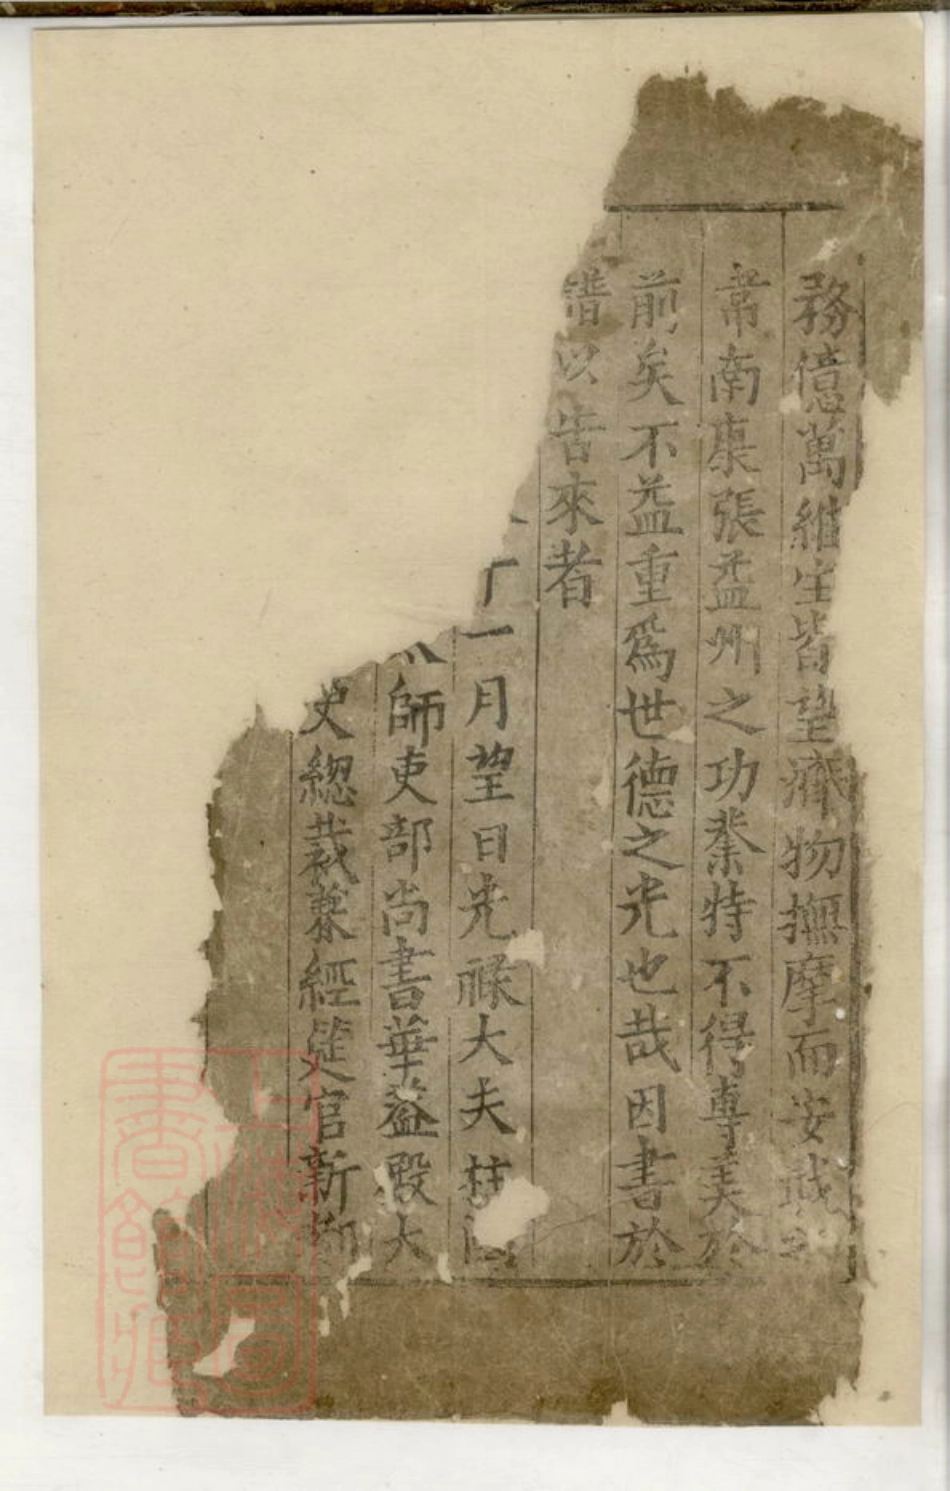 務億萬維室皆望濟物撫摩而安戢
常南稟張益州之功業特不得專美於
前矣不益重為世德之光也哉因書於
譜以告來者
一月望日光祿大夫柱國
師吏部尚書華蓋殿大
史總裁兼經筵官新都
上海圖書館藏